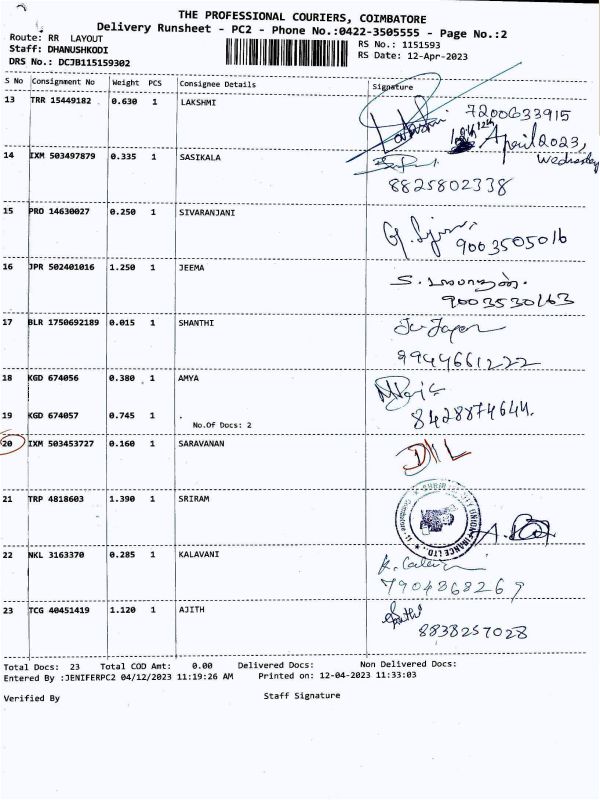 THE PROFESSIONAL COURIERS, COIMBATORE
Delivery Runsheet - PC2 - Phone No.:0422-3505555 - Page No.:2
Route: RR LAYOUT
RS No.: 1151593
Staff: DHANUSHKODI
RS Date: 12-Apr-2023
DRS No.: DCJB115159302
S No Consignment No Weight PCS Consignee Details Signature
13 TRR 15449182 0.630 1 LAKSHMI
7200633915
12th April 2023,
Wednesday
14 IXM 503497879 0.335 1 SASIKALA
8825802338
15 PRO 14630027 0.250 1 SIVARANJANI
9003505016
16 JPR 502401016 1.250 1 JEEMA
9003530163
17 BLR 1750692189 0.015 1 SHANTHI
9944661222
18 KGD 674056 0.380 1 AMYA
19 KGD 674057 0.745 1 .
8428874644.
No.Of Docs: 2
20 IXM 503453727 0.160 1 SARAVANAN
D/L
21 TRP 4818603 1.390 1 SRIRAM
22 NKL 3163370 0.285 1 KALAVANI
7904868269
23 TCG 40451419 1.120 1 AJITH
8838257028
Total Docs: 23 Total COD Amt: 0.00 Delivered Docs: Non Delivered Docs:
Entered By :JENIFERPC2 04/12/2023 11:19:26 AM Printed on: 12-04-2023 11:33:03
Verified By Staff Signature